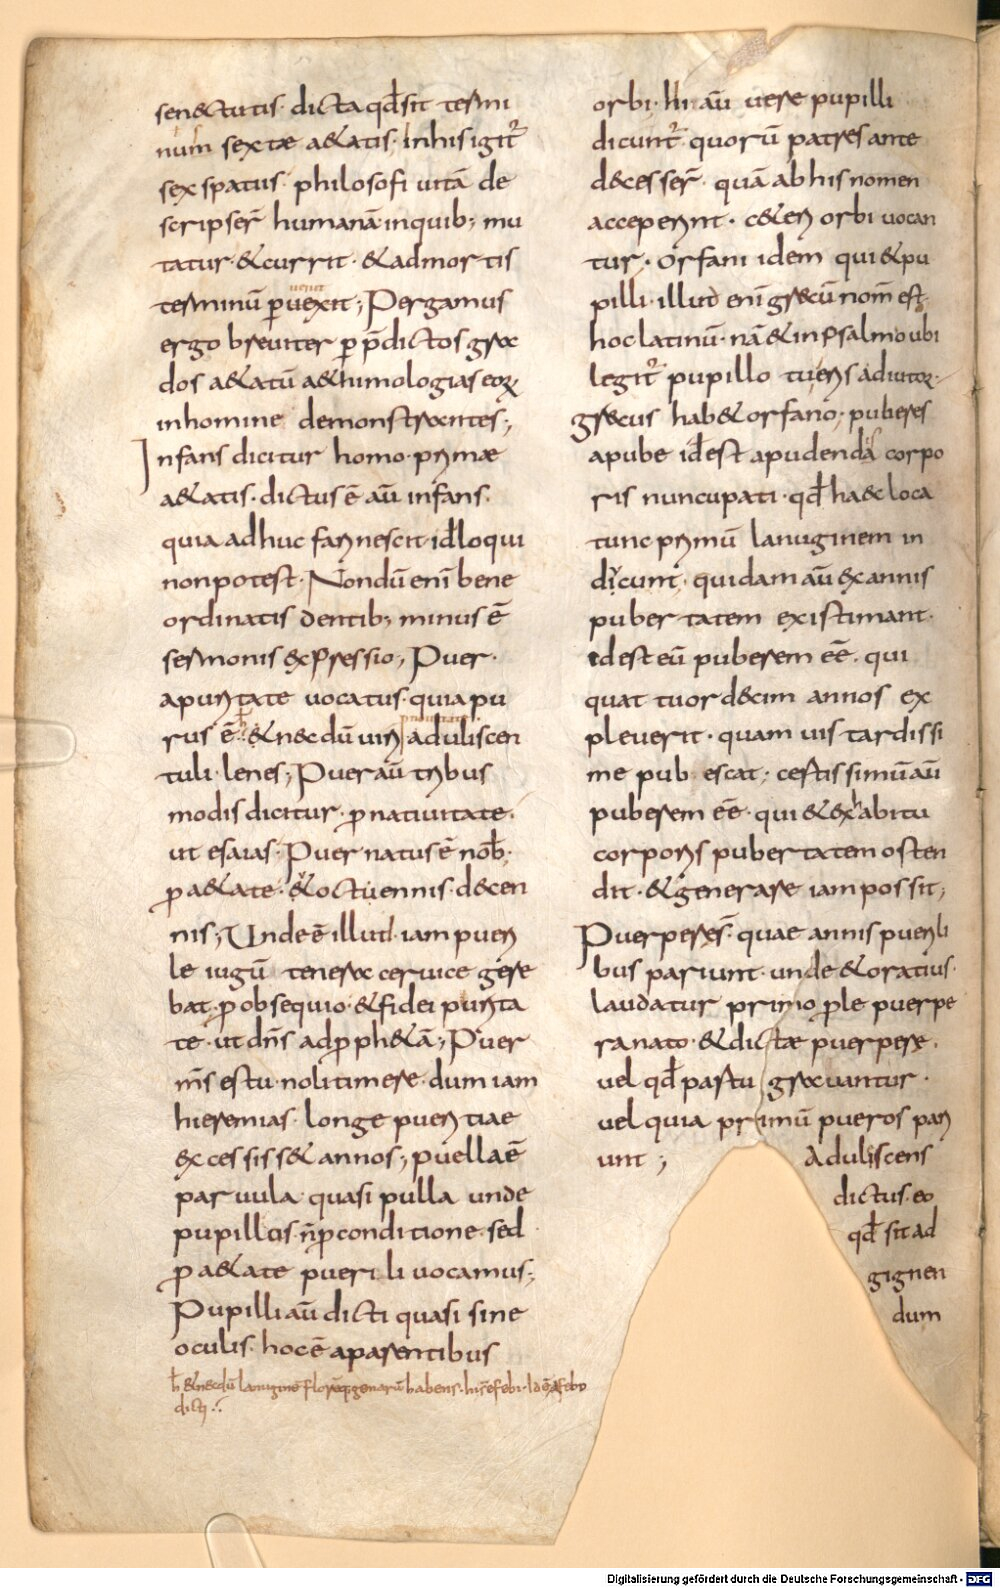 sen&ctutis· dicta qđ sit termi
num sextae a&atis· In his igit᷑
sex spatiis· philosofi uitā de
scripser̄ humanā· in quib; mu
tatur· & currit· & ad mortis
uenit
terminū ꝑuexit; Pergamus
ergo breuiter ꝑ p̄dictos gra
dos a&atū a&himologias eoꝝ
in homine demonstrantes;
Infans dicitur homo· primae
a&atis· dictus ē aū infans·
quia adhuc fari nescit· id̄ loqui
non potest· Nondū enī bene
ordinatis dentib; minus ē
sermonis expressio; Puer·
a puritate uocatus· quia pu
rus ē· & necdū uiri aduliscen
tuli lenes; Puer aū tribus
modis dicitur· ꝓ natiuitate·
ut esaias· Puer natus ē nob̄·
ꝓ a&ate· & octuennis· decen
nis; Unde ē illud· iam pueri
le iugū tenera ceruice gere
bat· ꝓ obsequio· & fidei purita
te· ut dn̄s ad proph&ā; Puer
m̄s es tu· noli timere· dum iam
hieremias· longe pueritiae
excessiss& annos; puella ē
paruula quasi pulla unde
pupillos· n̄ ꝓ conditione· sed
ꝓ a&ate pueri li uocamus;
Pupilli aū dicti quasi sine
oculis· hoc ē a parentibus
ħ & necdū lanuginē florēq; genarū habens· hi s̄ efebi· id ē a febo
dicti ·:
orbi· Hi aū uere pupilli
dicunt᷑· quorū patres ante
decesser̄· quā ab his nomen
acceperint· c&eri orbi uocan
tur· Orfani idem qui & pu
pilli· illud enī grecū nom̄ est·
hoc latinū· nā & in psalmo ubi
legit᷑ pupillo tu eris adiutor·
grecus hab& orfano· puberes
a pube id est a pudenda corpo
ris nuncupati· qđ haec loca
tunc primū lanuginem in
dicunt· quidam aū ex annis
pubertatem existimant·
id est eū puberem eē· qui
quattuordecim annos ex
pleuerit· quamuis tardissi
me pub escat· certissimū aū
puberem eē· qui & ex habitu
corporis pubertatem osten
dit· & generare iam possit;
Puerperes̄· quae annis puerili
bus pariunt· unde & oratius·
laudatur primo ꝓle puerpe
ra nato· & dictae puerpere·
uel qđ partu grauantur·
uel quia primū pueros pari
unt; Aduliscens
dictus· eo
qđ sit ad
gignen
dum
Digitalisierung gefördert durch die Deutsche Forschungsgemeinschaft - DFG